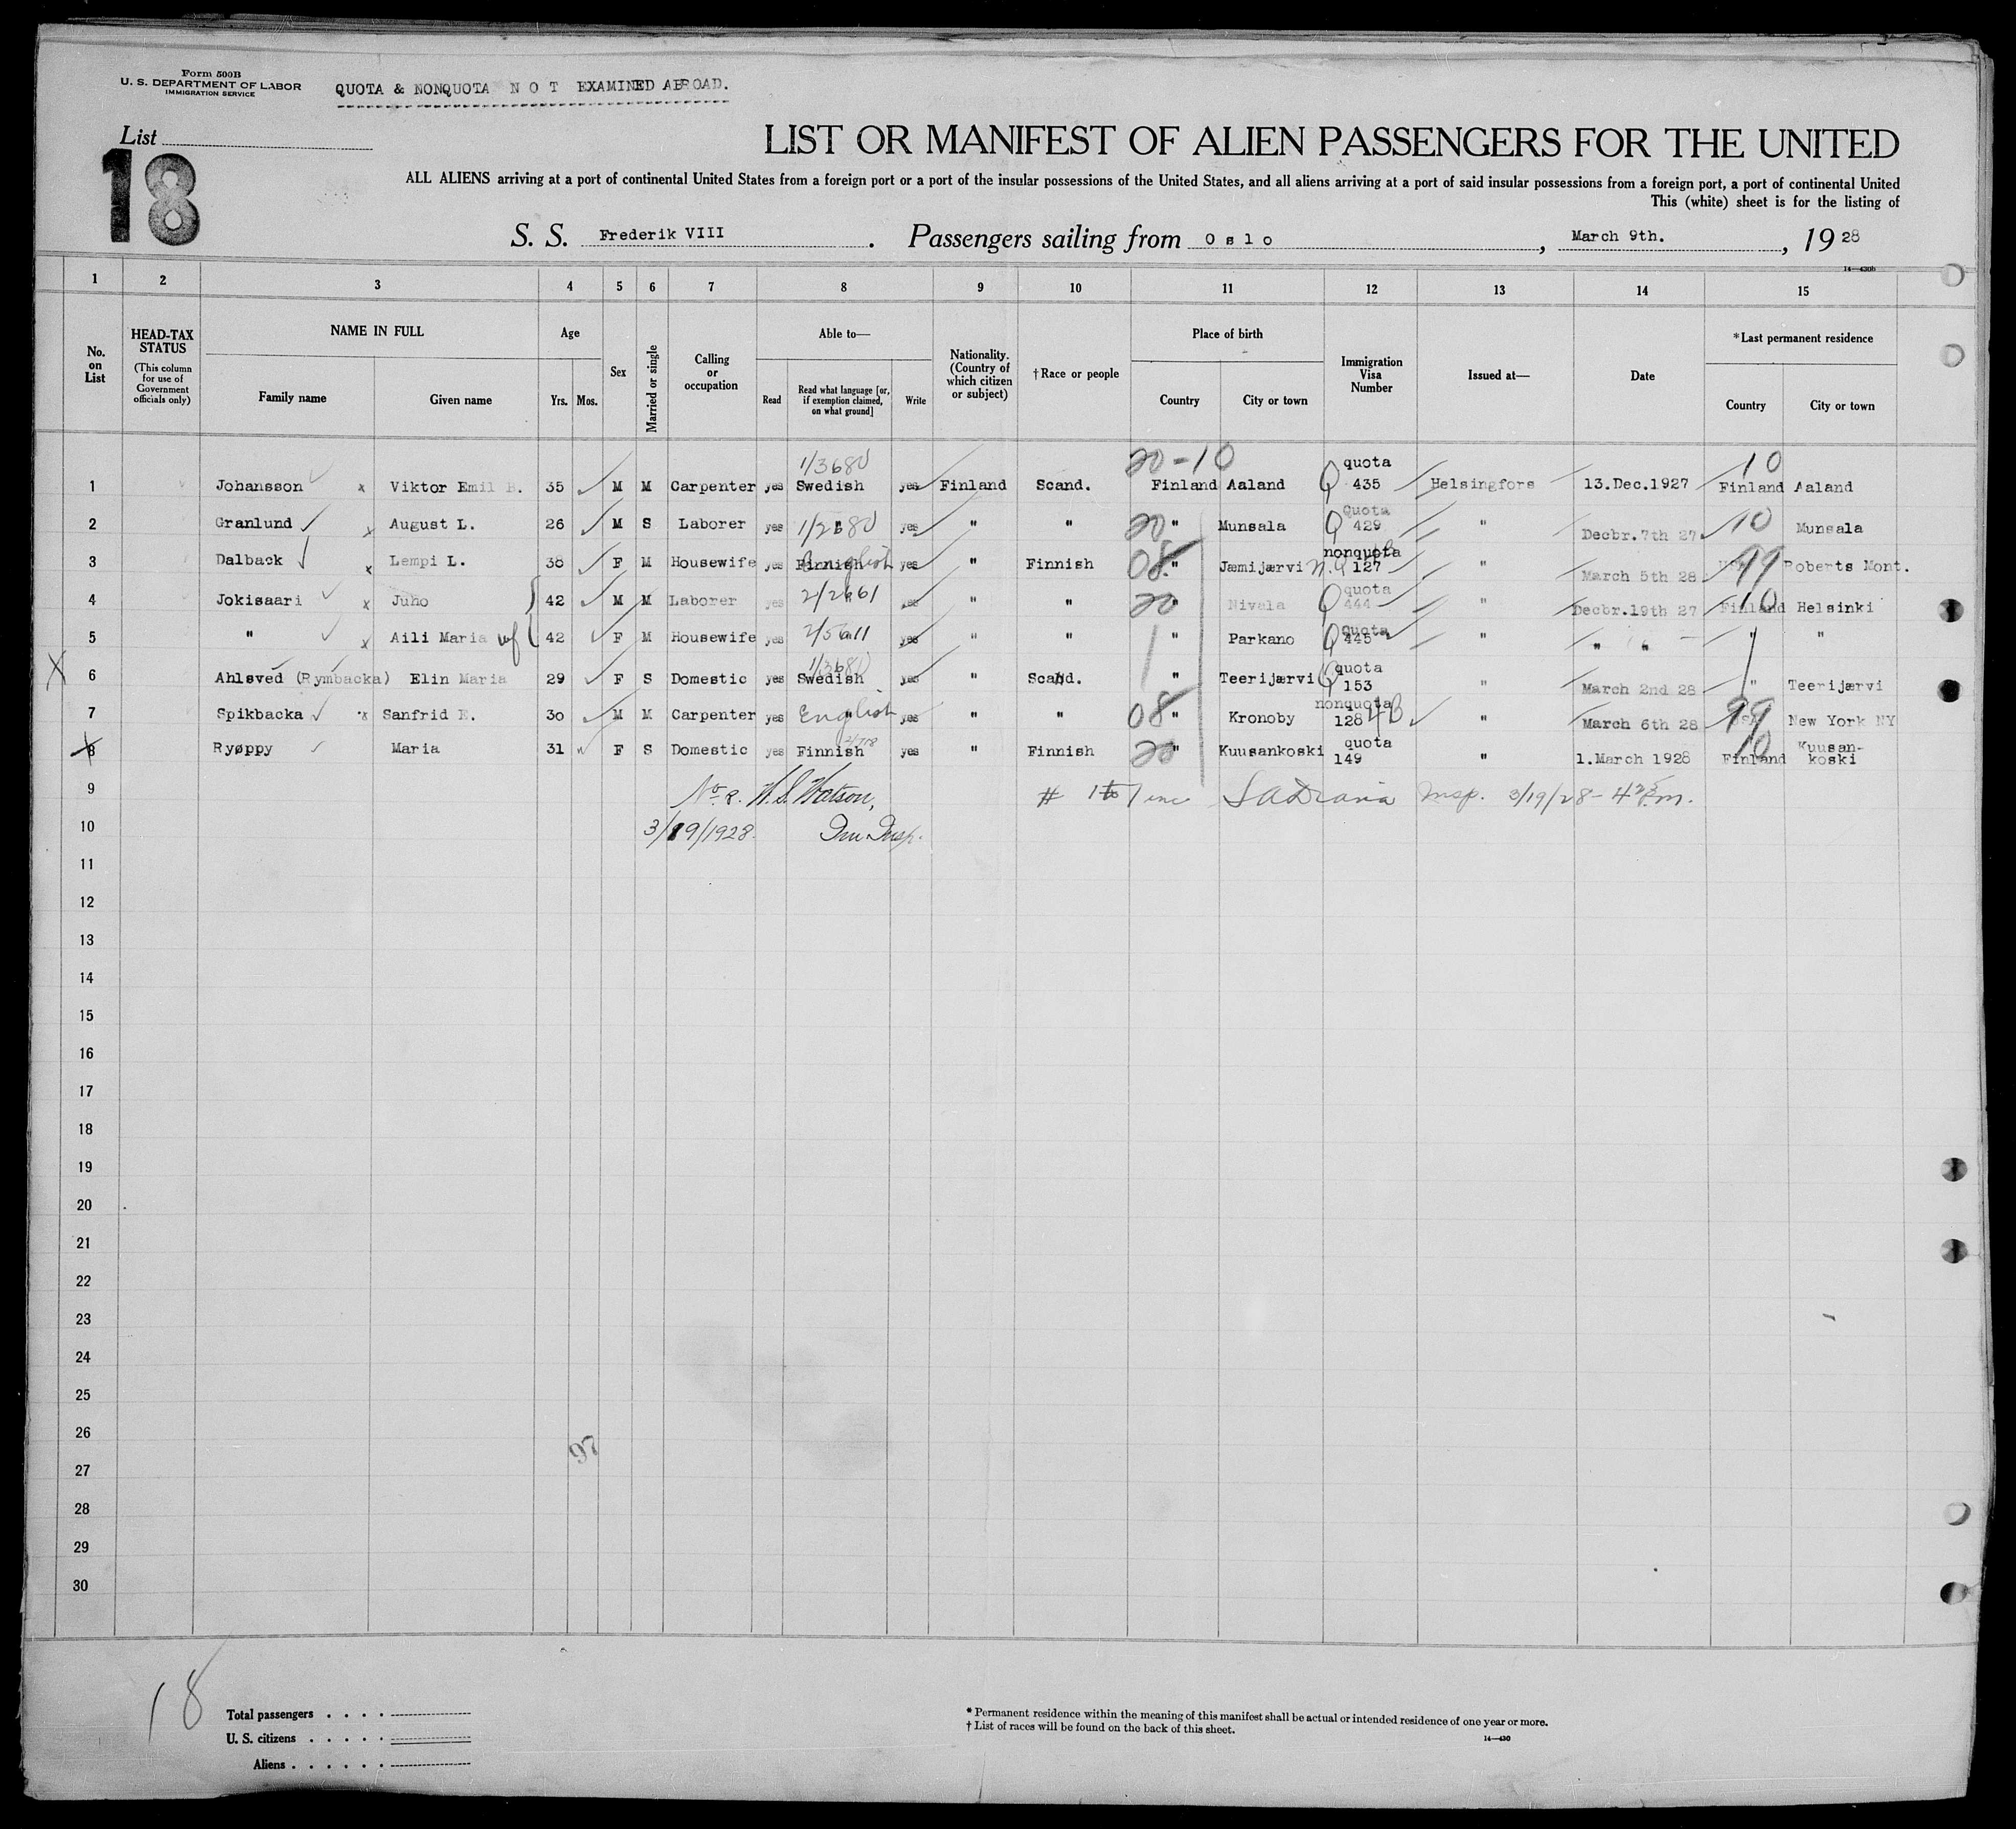 Form 500B
U. S. DEPARTMENT OF LABOR
IMMIGRATION SERVICE
QUOTA & NONQUOTA N O T EXAMINED ABROAD.
List
18
LIST OR MANIFEST OF ALIEN PASSENGERS FOR THE UNITED
ALL ALIENS arriving at a port of continental United States from a foreign port or a port of the insular possessions of the United States, and all aliens arriving at a port of said insular possessions from a foreign port, a port of continental United
This (white) sheet is for the listing of
S. S. Frederik VIII. Passengers sailing from Oslo, March 9th., 1928
14—430b
1 2 3 4 5 6 7 8 9 10 11 12 13 14 15
No. on List
HEAD-TAX STATUS (This column for use of Government officials only)
NAME IN FULL Family name Given name
Age Yrs. Mos.
Sex
Married or single
Calling or occupation
Able to— Read Read what language [or, if exemption claimed, on what ground] Write
Nationality. (Country of which citizen or subject)
†Race or people
Place of birth Country City or town
Immigration Visa Number
Issued at—
Date
*Last permanent residence Country City or town
1/3680 20-10 quota 10
1 Johansson x Viktor Emil B. 35 M M Carpenter yes Swedish yes Finland Scand. Finland Aaland Q 435 Helsingfors 13.Dec.1927 Finland Aaland
2 Granlund x August L. 26 M S Laborer yes " yes " " 20 " Munsala Q Quota 429 " Decbr. 7th 27 10 Munsala
3 Dalback x Lempi L. 38 F M Housewife yes Finnish English yes " Finnish 08 " Jæmijærvi n.Q nonquota 127 " March 5th 28 99 Roberts Mont.
4 Jokisaari x Juho 42 M M Laborer yes " yes " " 20 " Nivala Q quota 444 " Decbr. 19th 27 Finland 10 Helsinki
5 " x Aili Maria wf 42 F M Housewife yes 2/5611 yes " " " Parkano Q Quota 445 " " " " "
X 6 Ahlsved (Rymbacka) Elin Maria 29 F S Domestic yes 1/3680 Swedish yes " Scand. " Teerijærvi Q quota 153 " March 2nd 28 " Teerijærvi
7 Spikbacka x Sanfrid E. 30 M M Carpenter yes English " yes " " 08 " Kronoby nonquota 128 4B " March 6th 28 USA 99 New York NY
8 Ryøppy Maria 31 F S Domestic yes Finnish yes " Finnish 20 " Kuusankoski quota 149 " 1.March 1928 Finland 10 Kuusan-koski
9 No 8. W.S. Watson, # 1 to 7 inc Insp. 3/19/28 -
10 3/19/1928. Im Insp.
11
12
13
14
15
16
17
18
19
20
21
22
23
24
25
26
97
27
28
29
30
18
Total passengers
U. S. citizens
Aliens
* Permanent residence within the meaning of this manifest shall be actual or intended residence of one year or more.
† List of races will be found on the back of this sheet.
14—430